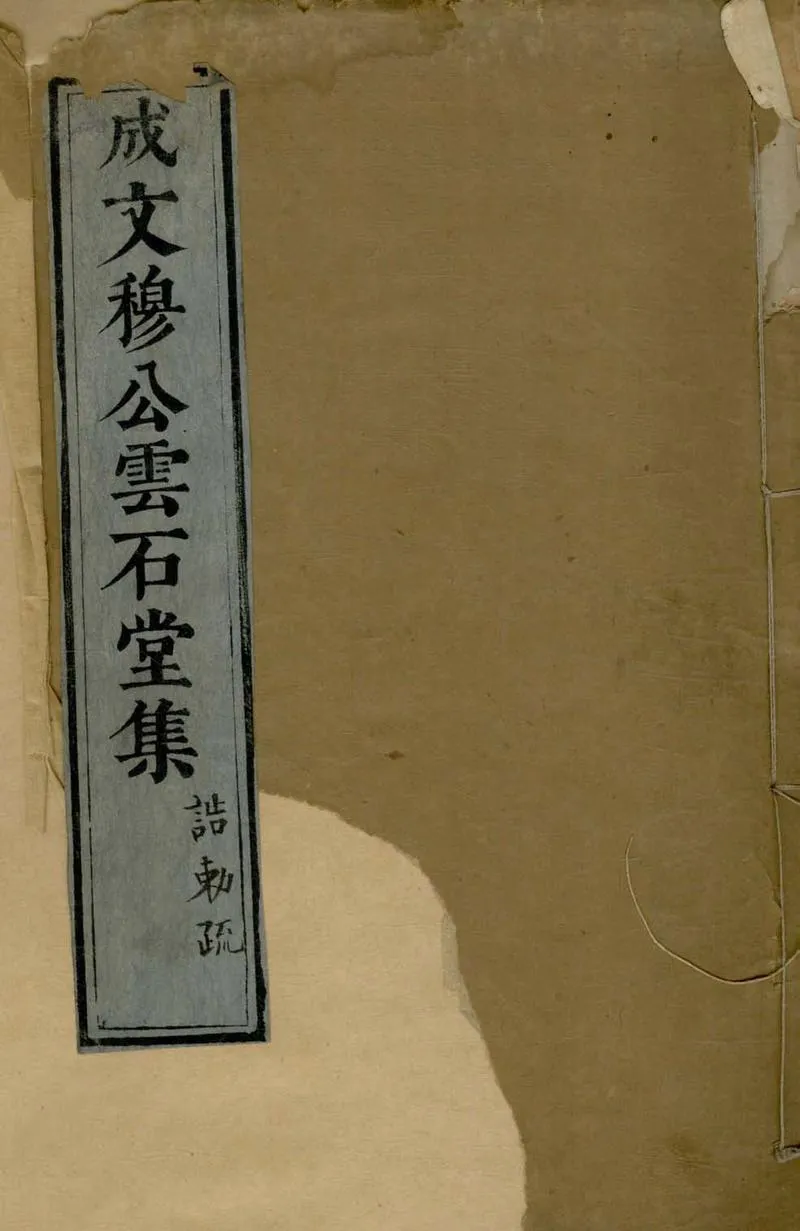 成文穆公雲石堂集
誥勅疏